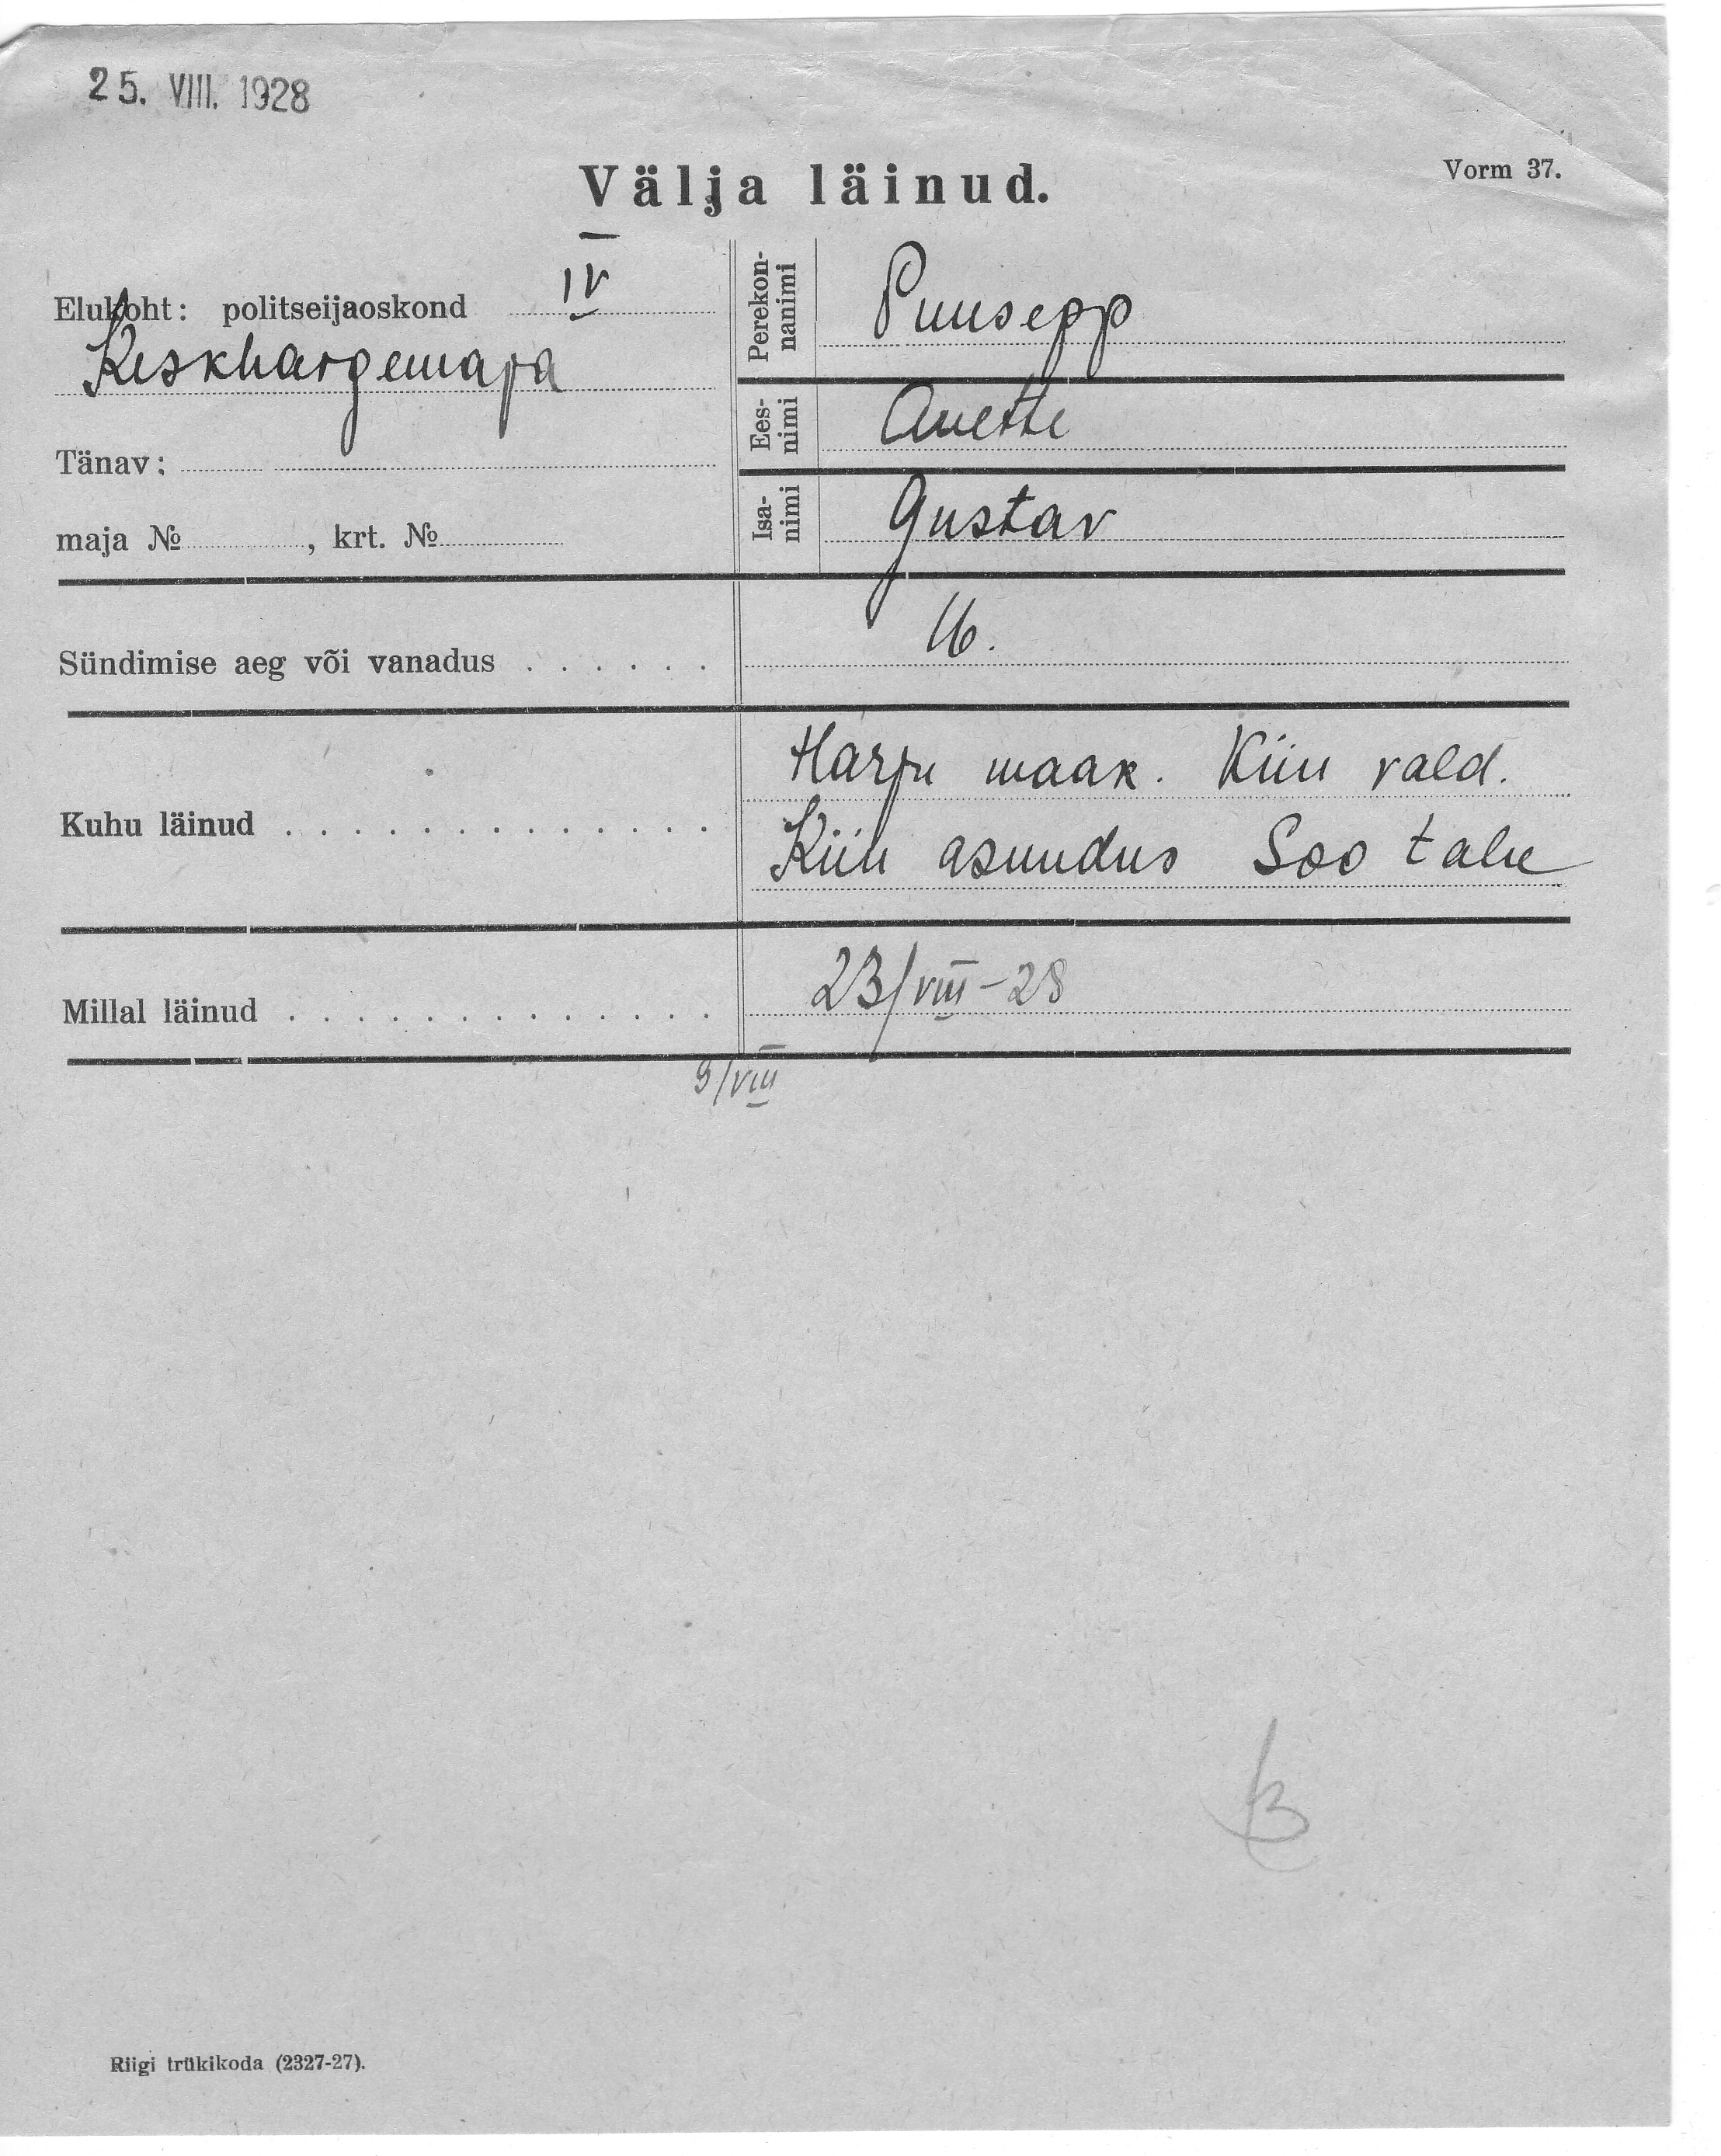 25. VIII. 1928
Vorm 37.
Välja läinud.
Elukoht: politseijaoskond IV
Keskhaigemaja
Tänav:
maja № , krt. №
Perekon-
nanimi Puusepp
Ees-
nimi Anette
Isa-
nimi Gustav
Sündimise aeg või vanadus 16.
Kuhu läinud Harju maak. Kiiu vald.
Kiiu asundus Soo talu
Millal läinud 23/VIII-28
9/VIII
Riigi trükikoda (2327-27).